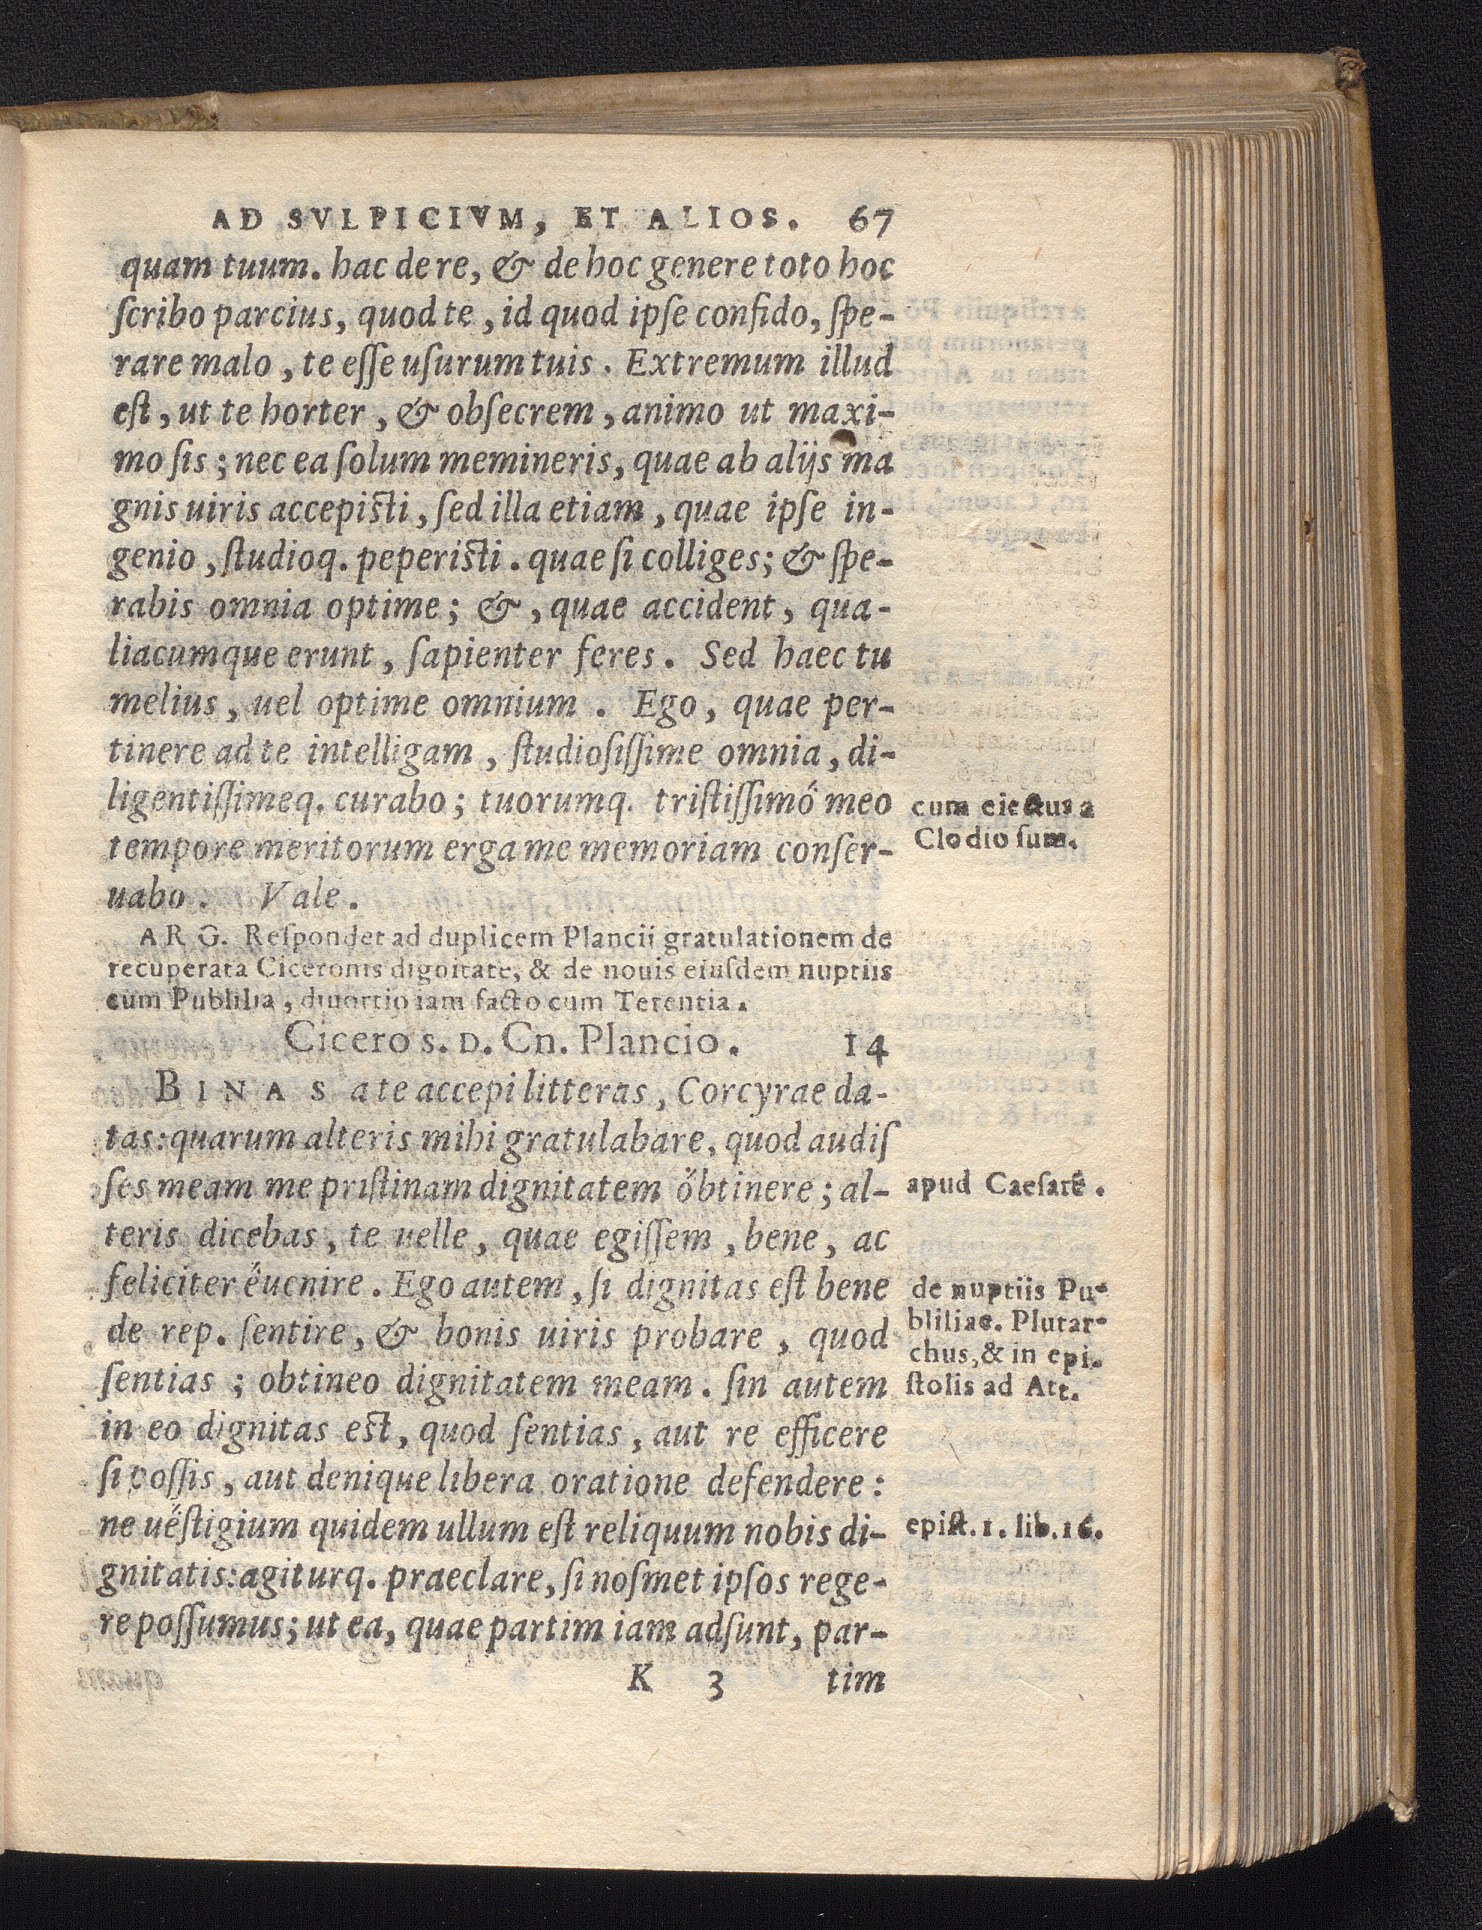 AD SVLPICIVM, ET ALIOS. 67
quam tuum. hac de re, & de hoc genere toto hoc
ſcribo parcius, quod te, id quod ipſe confido, ſpe-
rare malo, te eſſe uſurum tuis. Extremum illud
eſt, ut te horter, & obſecrem, animo ut maxi-
mo ſis; nec ea ſolum memineris, quae ab alijs ma
gnis uiris accepiſti, ſed illa etiam, quae ipſe in-
genio, ſtudioq. peperiſti. quae ſi colliges; & ſpe-
rabis omnia optime; &, quae accident, qua-
liacumque erunt, ſapienter feres. Sed haec tu
melius, uel optime omnium. Ego, quae per-
tinere ad te intelligam, ſtudioſiſſime omnia, di-
ligentiſſimeq. curabo; tuorumq. triſtiſſimo" meo
tempore meritorum erga me memoriam conſer-
uabo. Vale.
cum eiectus a
Clodio ſum.
ARG. Reſpondet ad duplicem Plancii gratulationem de
recuperata Ciceronis dignitate, & de nouis eiuſdem nuptiis
cum Publilia, diuortio iam facto cum Terentia.
Cicero s. D. Cn. Plancio. 14
BINAS a te accepi litteras, Corcyrae da-
tas: quarum alteris mihi gratulabare, quod audiſ
ſes meam me priſtinam dignitatem "obtinere; al-
teris dicebas, te uelle, quae egiſſem, bene, ac
feliciter "euenire. Ego autem, ſi dignitas eſt bene
de rep. ſentire, & bonis uiris probare, quod
ſentias; obtineo dignitatem meam. ſin autem
in eo dignitas eſt, quod ſentias, aut re efficere
ſi poſſis, aut denique libera oratione defendere:
ne ue"ſtigium quidem ullum eſt reliquum nobis di-
gnitatis: agiturq. praeclare, ſi noſmet ipſos rege-
re poſſumus; ut ea, quae partim iam adſunt, par-
apud Caeſarē.
de nuptiis Pu-
bliliae. Plutar-
chus, & in epi-
ſtolis ad Att.
epiſt. 1. lib. 16.
K 3 tim